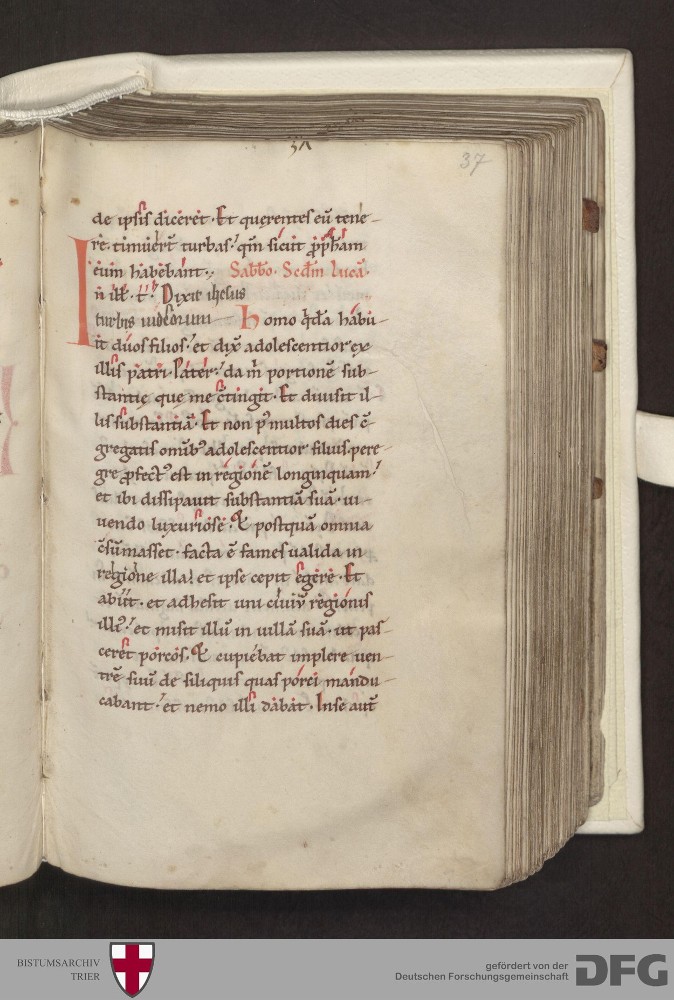 37
de ipsis dicer&et. Et queręntes eū tene-
re. timuer̄t turbas. qm̄ sicut p̄ph̄am
eum habebant. Sabb̄o. Scd̄m lucā.
In ill̄. t̄. Dixit ihesus
turbis iudeorum Homo q̄dā habu-
it duos filios. et dix̄ adolescentior ex
illis patri. Pater. da m̄ portionē sub-
stantię que me c̄tingit. Et diuisit il-
lis substantiā. Et non p̄ multos dies c̄-
gregatis omib⁹ adolescentior filius. pere-
gre ꝓfect⁹ est in regionē longinquam.
et ibi dissipauit substantiā suā. ui-
uendo luxuriose. Et postquā omnia
c̄sumasset. facta ē fames ualida in
regione illa. et ipse cepit egere. Et
abiit. et adhesit uni ciuiū regionis
illi⁹. et misit illū in uillā suā. ut pas-
ceret porcos. Et cupiebat implere uen-
trē suū de siliquis quas porci mandu-
cabant. et nemo illi dabat. In se aut̄
BISTUMSARCHIV
TRIER
gefördert von der
Deutschen Forschungsgemeinschaft
DFG